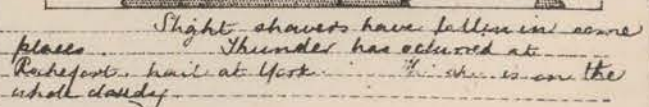 Slight showers have fallen in some
places. Thunder has occurred at
Rochefort, hail at York. is on the
whole cloudy